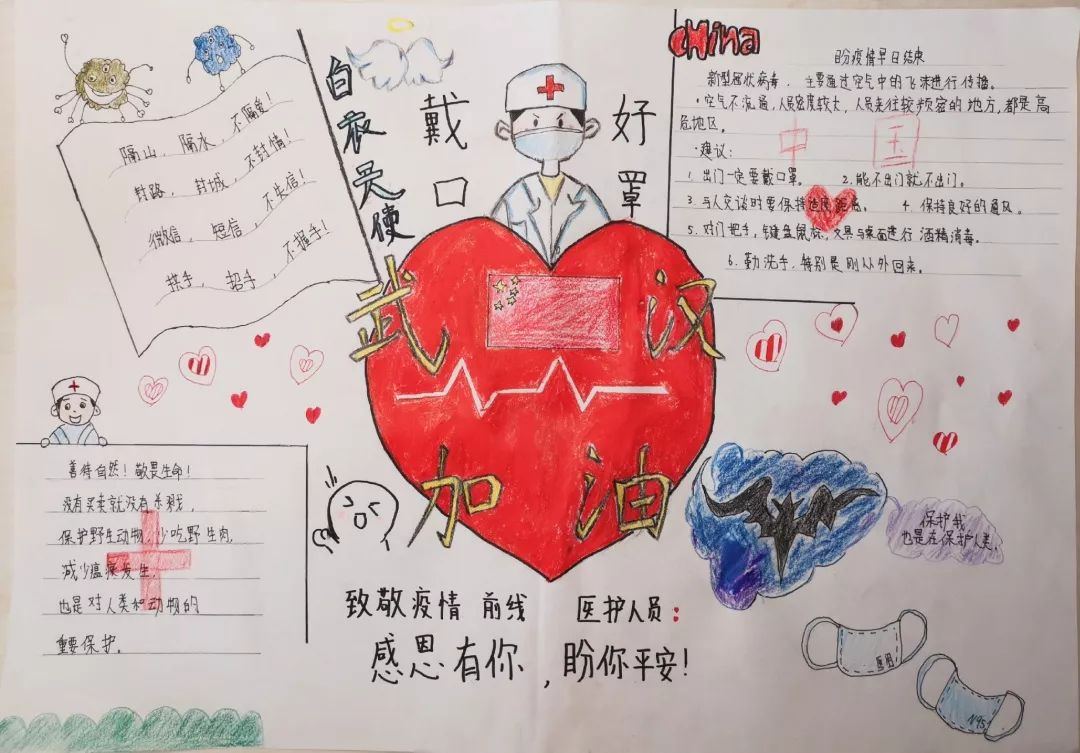 白衣天使
戴口
好罩
隔山、隔水、不隔爱！
封路、封城、不封情！
微信、短信、不失信！
拱手、招手、不握手！
CHina
盼疫情早日结束
新型冠状病毒，主要通过空气中的飞沫进行传播。
·空气不流通，人员密度较大，人员来往较频密的地方，都是高
危地区。
中国
·建议：
1. 出门一定要戴口罩。 2. 能不出门就不出门。
3. 与人交谈时要保持适度距离。 4. 保持良好的通风。
5. 对门把手，键盘鼠标，文具与桌面进行酒精消毒。
6. 勤洗手，特别是刚从外回来。
武汉
加油
善待自然！敬畏生命！
没有买卖就没有杀戮，
保护野生动物，少吃野生肉，
减少瘟疾发生，
也是对人类和动物的
重要保护。
保护我
也是在保护人类。
致敬疫情 前线 医护人员：
感恩有你，盼你平安！
医用
N95